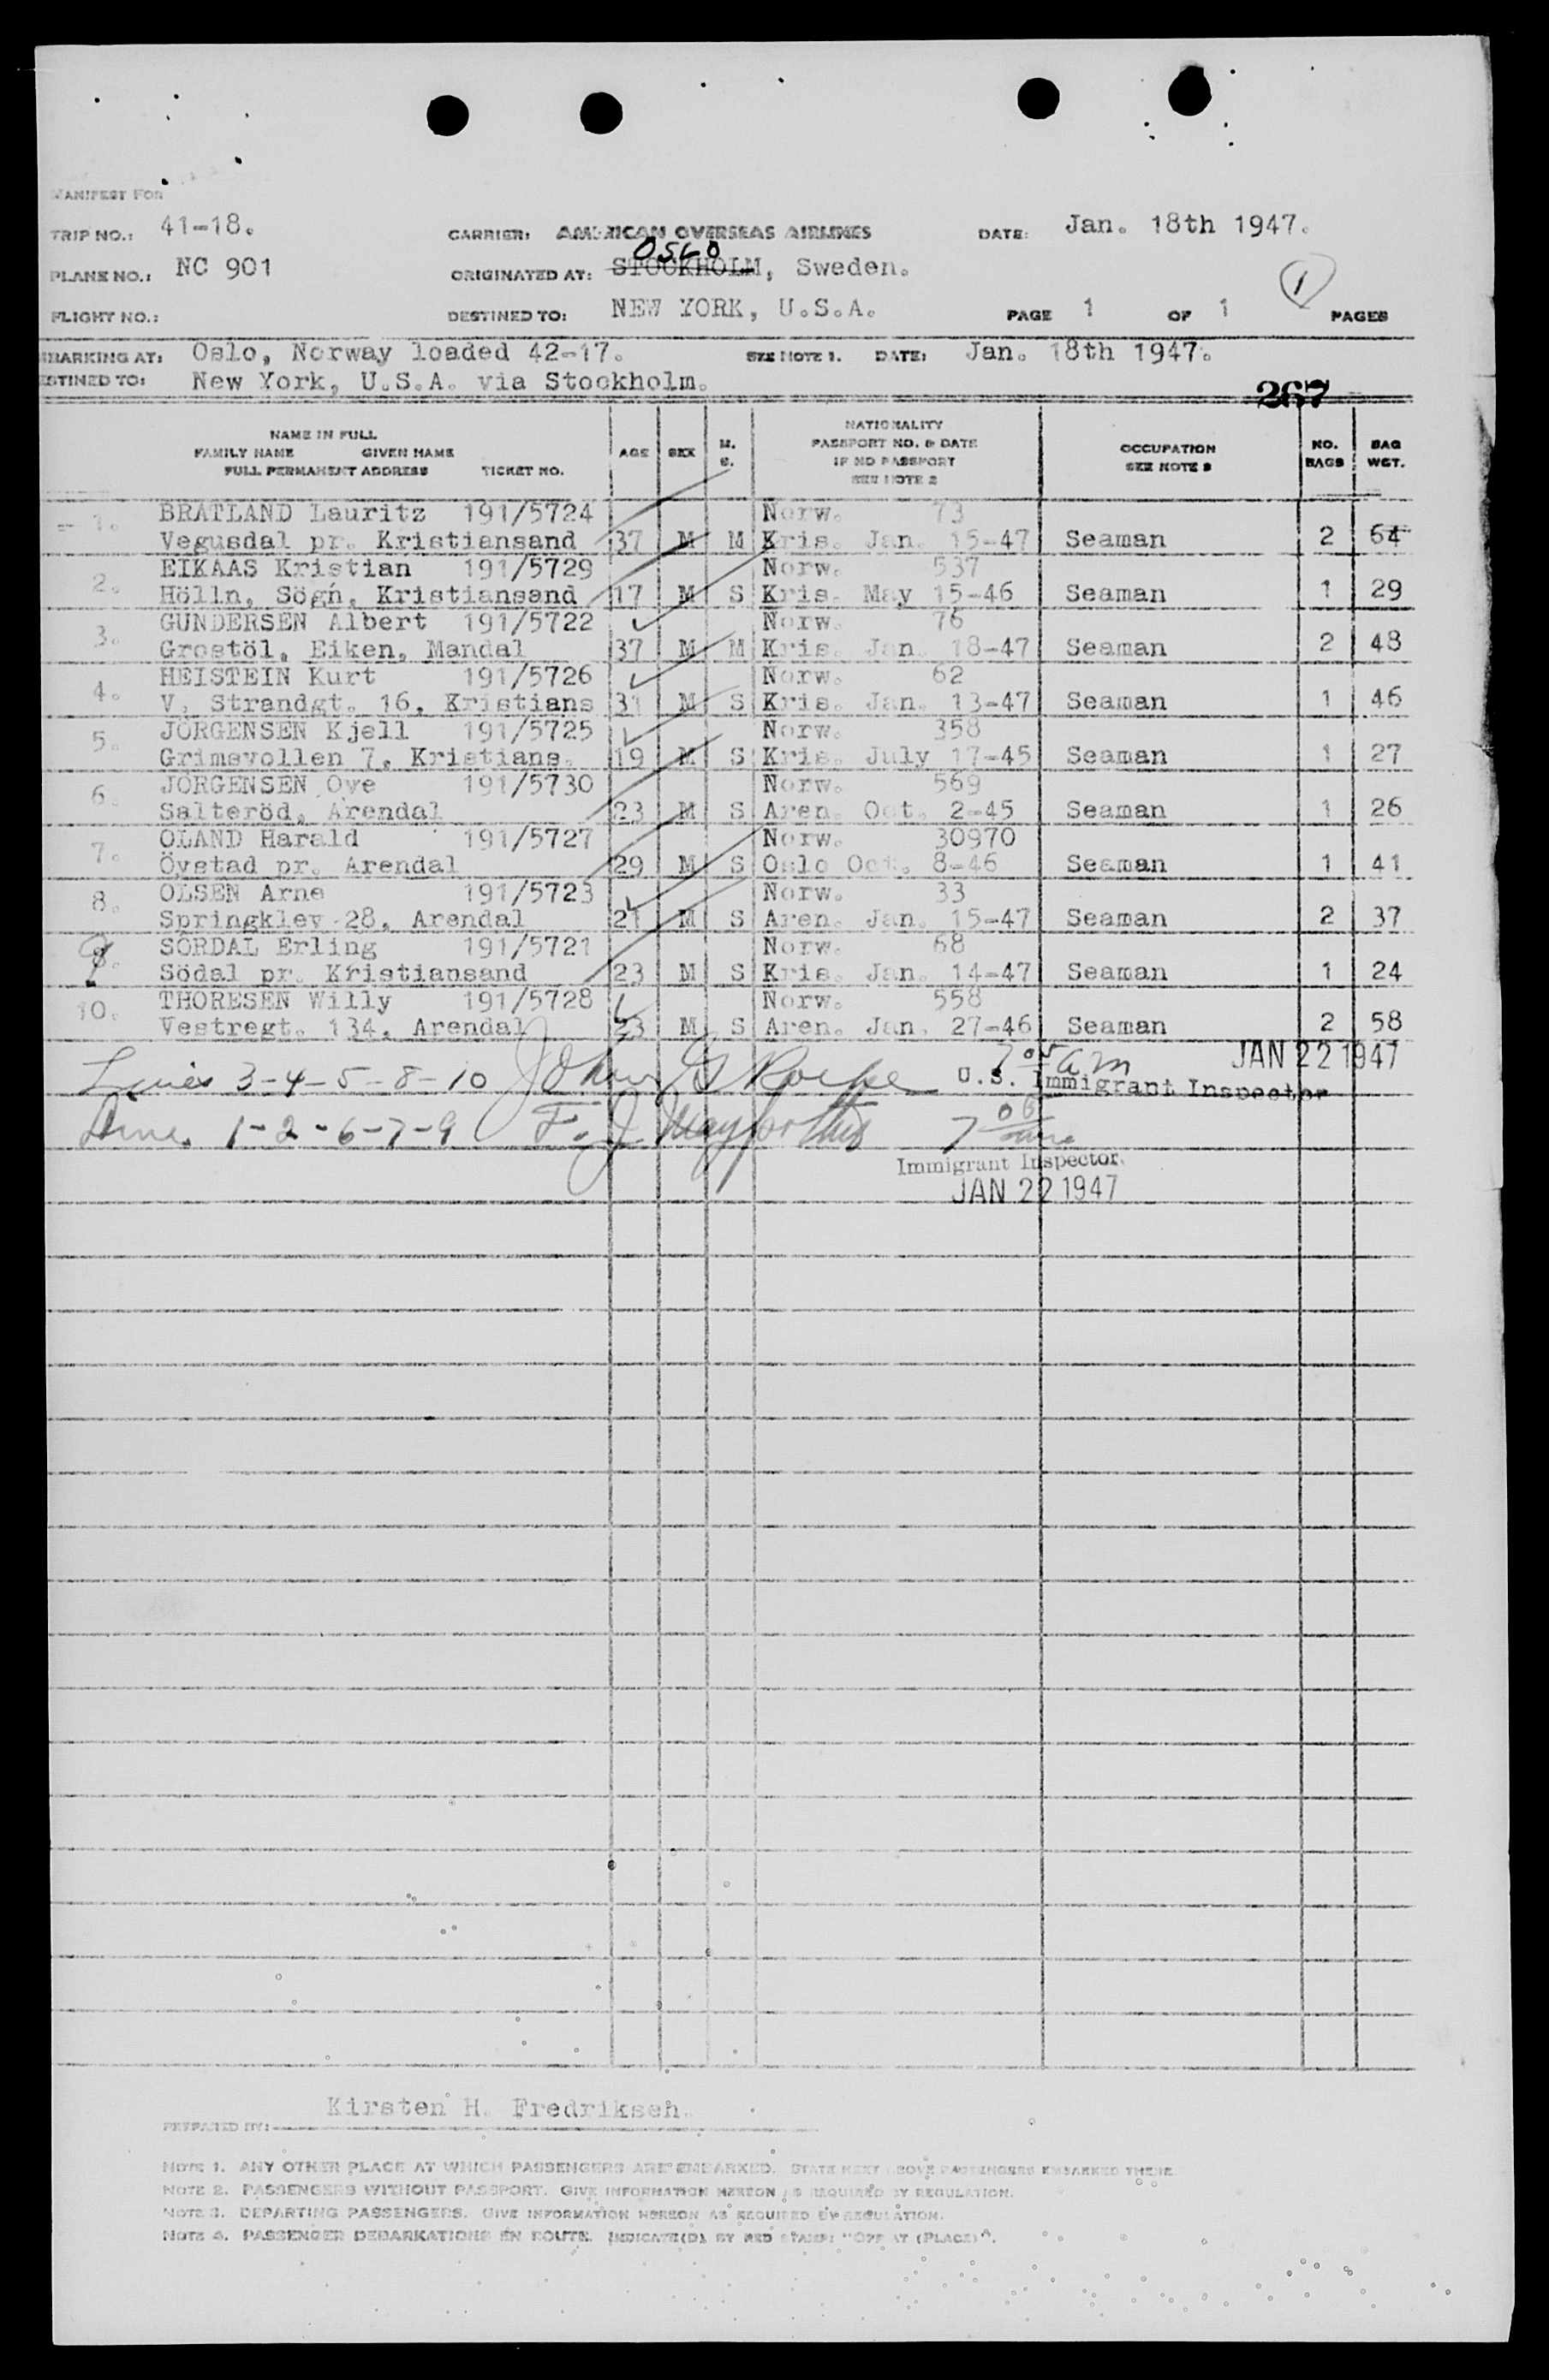 MANIFEST FOR
TRIP NO.: 41-18. CARRIER: AMERICAN OVERSEAS AIRLINES DATE: Jan. 18th 1947.
OSLO
PLANE NO.: NC 901 ORIGINATED AT: STOCKHOLM, Sweden. 1
FLIGHT NO.: DESTINED TO: NEW YORK, U.S.A. PAGE 1 OF 1 PAGES
MBARKING AT: Oslo, Norway loaded 42-17. SEE NOTE 1. DATE: Jan. 18th 1947.
ESTINED TO: New York, U.S.A. via Stockholm.
267
NAME IN FULL
FAMILY NAME GIVEN NAME
FULL PERMANENT ADDRESS TICKET NO.
AGE SEX M. S.
NATIONALITY
PASSPORT NO. & DATE
IF NO PASSPORT
SEE NOTE 2
OCCUPATION
SEE NOTE 3
NO. BAGS
BAG WGT.
1. BRATLAND Lauritz 191/5724 Norw. 73
Vegusdal pr. Kristiansand 37 M M Kris. Jan. 15-47 Seaman 2 64
2. EIKAAS Kristian 191/5729 Norw. 537
Hölln, Sögn, Kristiansand 17 M S Kris. May 15-46 Seaman 1 29
3. GUNDERSEN Albert 191/5722 Norw. 76
Grostöl, Eiken, Mandal 37 M M Kris. Jan. 18-47 Seaman 2 48
4. HEISTEIN Kurt 191/5726 Norw. 62
V. Strandgt. 16, Kristians 31 M S Kris. Jan. 13-47 Seaman 1 46
5. JÖRGENSEN Kjell 191/5725 Norw. 358
Grimsvollen 7, Kristians. 19 M S Kris. July 17-45 Seaman 1 27
6. JÖRGENSEN Ove 191/5730 Norw. 569
Salteröd, Arendal 23 M S Aren. Oct. 2-45 Seaman 1 26
7. OLAND Harald 191/5727 Norw. 30970
Övstad pr. Arendal 29 M S Oslo Oct. 8-46 Seaman 1 41
8. OLSEN Arne 191/5723 Norw. 33
Springklev 28, Arendal 21 M S Aren. Jan. 15-47 Seaman 2 37
9. SÖRDAL Erling 191/5721 Norw. 68
Södal pr. Kristiansand 23 M S Kris. Jan. 14-47 Seaman 1 24
10. THORESEN Willy 191/5728 Norw. 558
Vestregt. 134, Arendal 23 M S Aren. Jan. 27-46 Seaman 2 58
7 05 am JAN 22 1947
Lines 3-4-5-8-10 John G Roche U.S. Immigrant Inspector
Line. 1-2-6-7-9 F. J. 7 05
Immigrant Inspector.
JAN 22 1947
Kirsten H. Fredriksen.
PREPARED BY:
NOTE 1. ANY OTHER PLACE AT WHICH PASSENGERS ARE EMBARKED. STATE NEXT ABOVE PASSENGERS EMBARKED THERE
NOTE 2. PASSENGERS WITHOUT PASSPORT. GIVE INFORMATION HEREON AS REQUIRED BY REGULATION.
NOTE 3. DEPARTING PASSENGERS. GIVE INFORMATION HEREON AS REQUIRED BY REGULATION.
NOTE 4. PASSENGER DEBARKATIONS EN ROUTE. INDICATE(D) BY RED STAMP: "OFF AT (PLACE)".